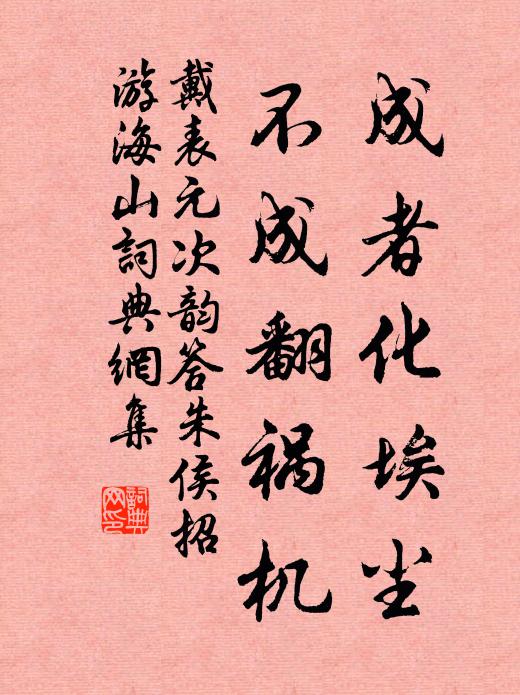 成者化埃尘
不成翻祸机
戴表元次韵答朱侯招
游海山詞典網集
詞典
网印